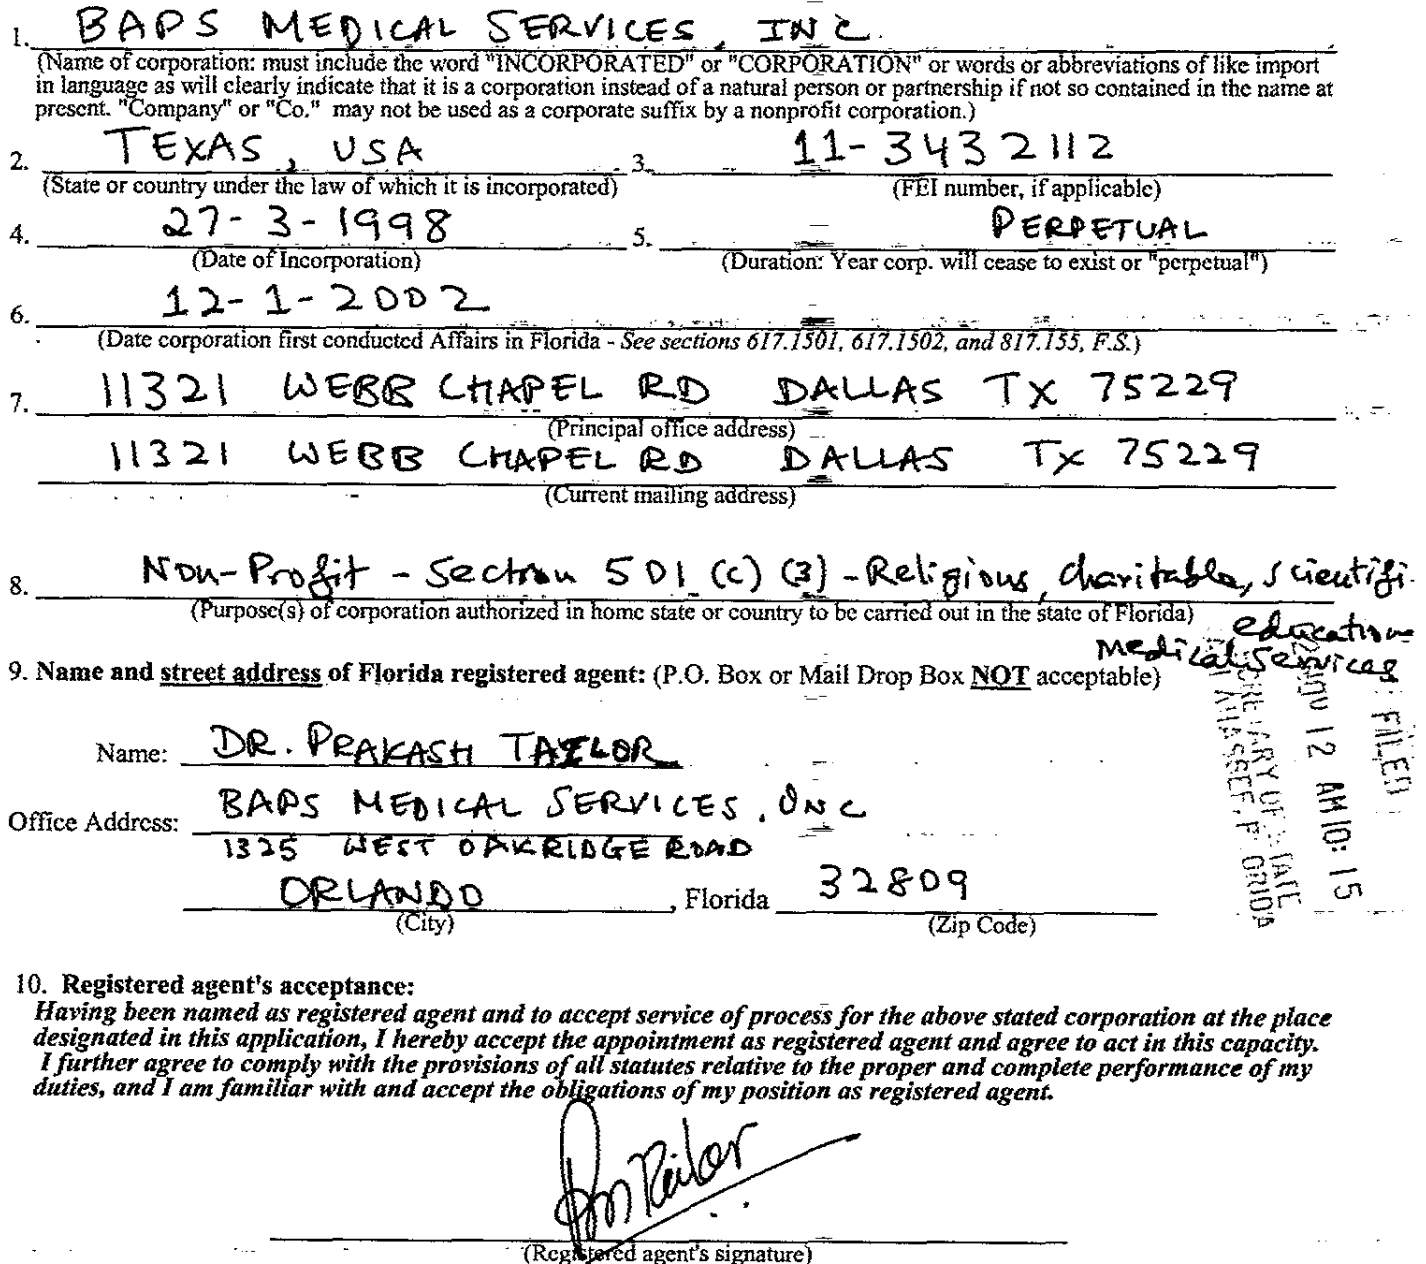 1. BAPS MEDICAL SERVICES, INC.
(Name of corporation: must include the word "INCORPORATED" or "CORPORATION" or words or abbreviations of like import
in language as will clearly indicate that it is a corporation instead of a natural person or partnership if not so contained in the name at
present. "Company" or "Co." may not be used as a corporate suffix by a nonprofit corporation.)
2. TEXAS, USA 3. 11-3432112
(State or country under the law of which it is incorporated) (FEI number, if applicable)
4. 27-3-1998 5. PERPETUAL
(Date of Incorporation) (Duration: Year corp. will cease to exist or "perpetual")
6. 12-1-2002
(Date corporation first conducted Affairs in Florida - See sections 617.1501, 617.1502, and 817.155, F.S.)
7. 11321 WEBB CHAPEL RD DALLAS TX 75229
(Principal office address)
11321 WEBB CHAPEL RD DALLAS TX 75229
(Current mailing address)
8. Non-Profit - Section 501 (c) (3) - Religious, charitable, scientifi
(Purpose(s) of corporation authorized in home state or country to be carried out in the state of Florida)
education
Medical Services
9. Name and street address of Florida registered agent: (P.O. Box or Mail Drop Box NOT acceptable)
Name: DR. PRAKASH TAILOR
Office Address: BAPS MEDICAL SERVICES, INC
1325 WEST OAKRIDGE ROAD
ORLANDO, Florida 32809
(City) (Zip Code)
FILED
NOV 12 AM 10: 15
SECRETARY OF STATE
TALLAHASSEE, FLORIDA
10. Registered agent's acceptance:
Having been named as registered agent and to accept service of process for the above stated corporation at the place
designated in this application, I hereby accept the appointment as registered agent and agree to act in this capacity.
I further agree to comply with the provisions of all statutes relative to the proper and complete performance of my
duties, and I am familiar with and accept the obligations of my position as registered agent.
(Registered agent's signature)